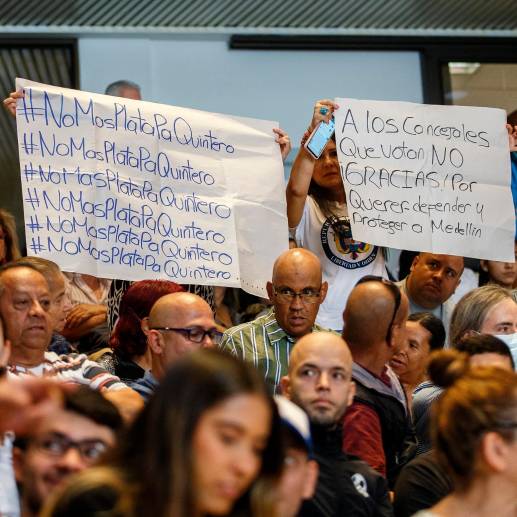 #NoMasPlataPaQuintero
#NoMasPlataPaQuintero
#NoMasPlataPaQuintero
#NoMasPlataPaQuintero
#NoMasPlataPaQuintero
#NoMasPlataPaQuintero
A los Concejales
Que Votan NO
¡GRACIAS! Por
Queres defender y
Proteger a Medellín